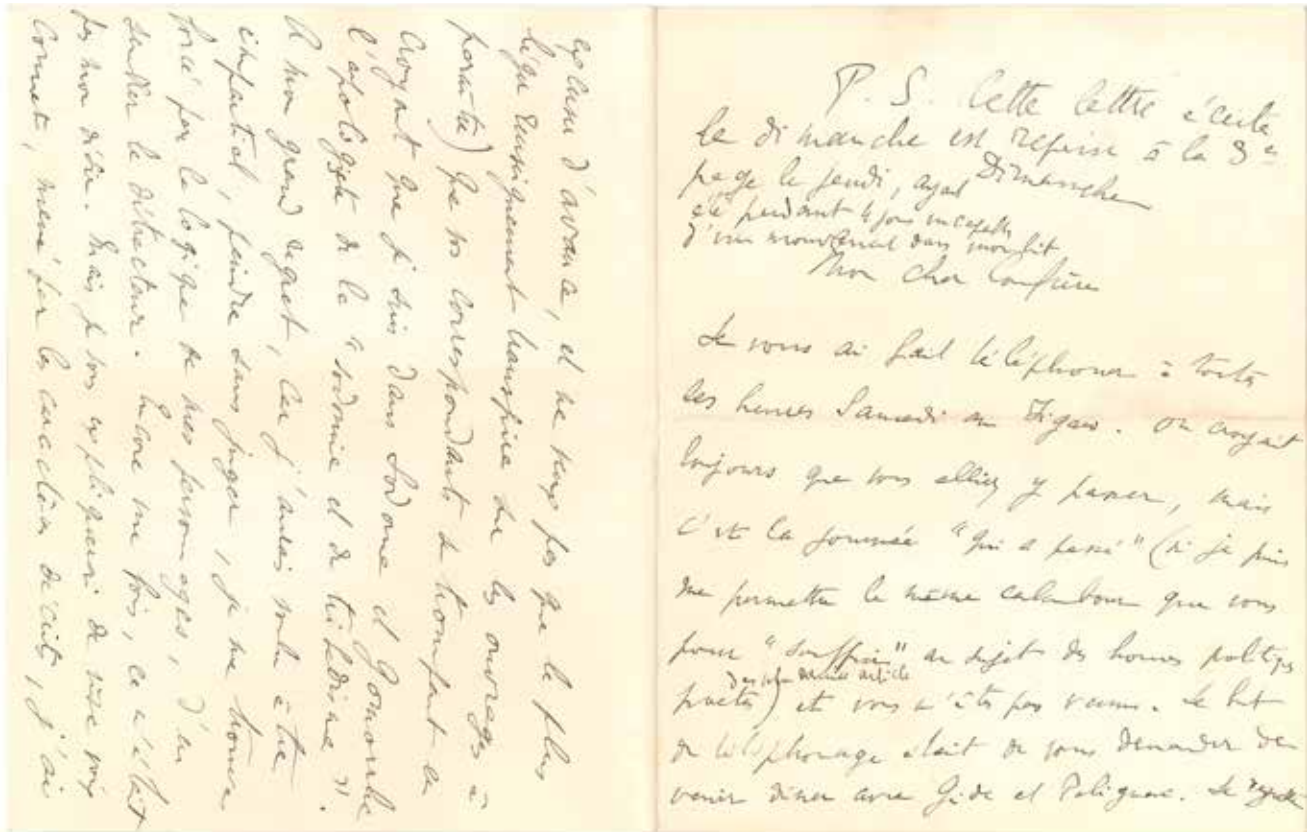 P. S. Cette lettre écrite
le dimanche est reprise à la 3e
page le jeudi, ayant Dimanche
été pendant 4 jours incapable
d'un mouvement dans mon lit
Mon cher Confrère
Je vous ai fait téléphoner à toutes
les heures Samedi au Figaro. On croyait
toujours que vous alliez y passer, mais
c'est la journée "qui a passé" (si je puis
me permettre le même calembour que vous
pour "souffrir" au sujet des hommes politiques
dans votre article
poètes) et vous n'êtes pas venu. Le but
du téléphonage était de vous demander de
venir dîner avec Gide et Polignac. Je
d'avance, et ne veux pas que le plus
transpire de les ouvrages à
paraître) que vos correspondants se trompent en
croyant que je suis dans Sodome et Gomorrhe
l'apologiste de la "sodomie et du
A mon grand regret, car j'aurais voulu être
impartial, peindre sans juger, je me trouve
forcé par la logique de mes personnages, d'en
sembler le détracteur. Encore une fois, ce n'était
pas mon désir. Mais je vous expliquerai de vive voix
comment, mené par les caractères décrits, j'ai